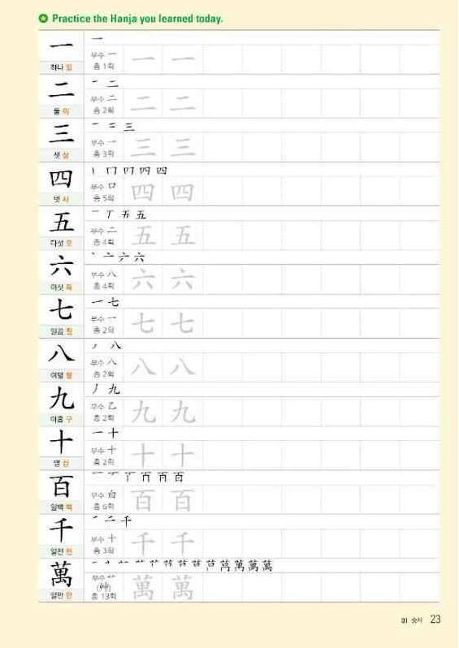 Practice the Hanja you learned today.
一 一
하나 일 부수 一 총 1획 一 一
二 ˉ 二
둘 이 부수 二 총 2획 二 二
三 ˉ = 三
셋 삼 부수 一 총 3획 三 三
四 丨 冂 冂 四 四
넷 사 부수 口 총 5획 四 四
五 一 丁 五 五
다섯 오 부수 二 총 4획 五 五
六 丶 亠 六 六
여섯 육 부수 八 총 4획 六 六
七 一 七
일곱 칠 부수 一 총 2획 七 七
八 丿 八
여덟 팔 부수 八 총 2획 八 八
九 丿 九
아홉 구 부수 乙 총 2획 九 九
十 一 十
열 십 부수 十 총 2획 十 十
百
일백 백 부수 白 총 6획 百 百
千 ˊ 二 千
일천 천 부수 十 총 3획 千 千
萬
일만 만 부수 艹 (艸) 총 13획 萬 萬
01 숫자 23